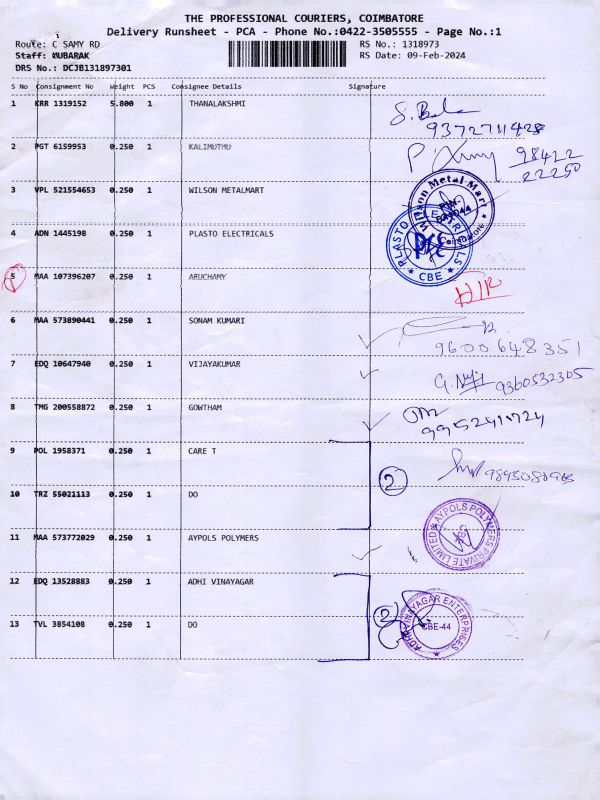 THE PROFESSIONAL COURIERS, COIMBATORE
Delivery Runsheet - PCA - Phone No.:0422-3505555 - Page No.:1
Route: C SAMY RD RS No.: 1318973
Staff: MUBARAK RS Date: 09-Feb-2024
DRS No.: DCJB131897301
S No Consignment No Weight PCS Consignee Details Signature
1 KRR 1319152 5.800 1 THANALAKSHMI
9372711428
2 PGT 6159953 0.250 1 KALIMUTHU 98422
22250
3 VPL 521554653 0.250 1 WILSON METALMART Wilson Metal Mart
4 ADN 1445198 0.250 1 PLASTO ELECTRICALS PLASTO ELECTRICALS
CBE
5 MAA 107396207 0.250 1 ARUCHAMY
6 MAA 573890441 0.250 1 SONAM KUMARI
9600648351
7 EDQ 10647940 0.250 1 VIJAYAKUMAR 9360532365
8 TMG 200558872 0.250 1 GOWTHAM
9 POL 1958371 0.250 1 CARE T
2
10 TRZ 55021113 0.250 1 DO
11 MAA 573772029 0.250 1 AYPOLS POLYMERS AYPOLS POLYMERS PRIVATE LIMITED
12 EDQ 13528883 0.250 1 ADHI VINAYAGAR ADHI VINAYAGAR ENTERPRISES
2 CBE-44
13 TVL 3854108 0.250 1 DO